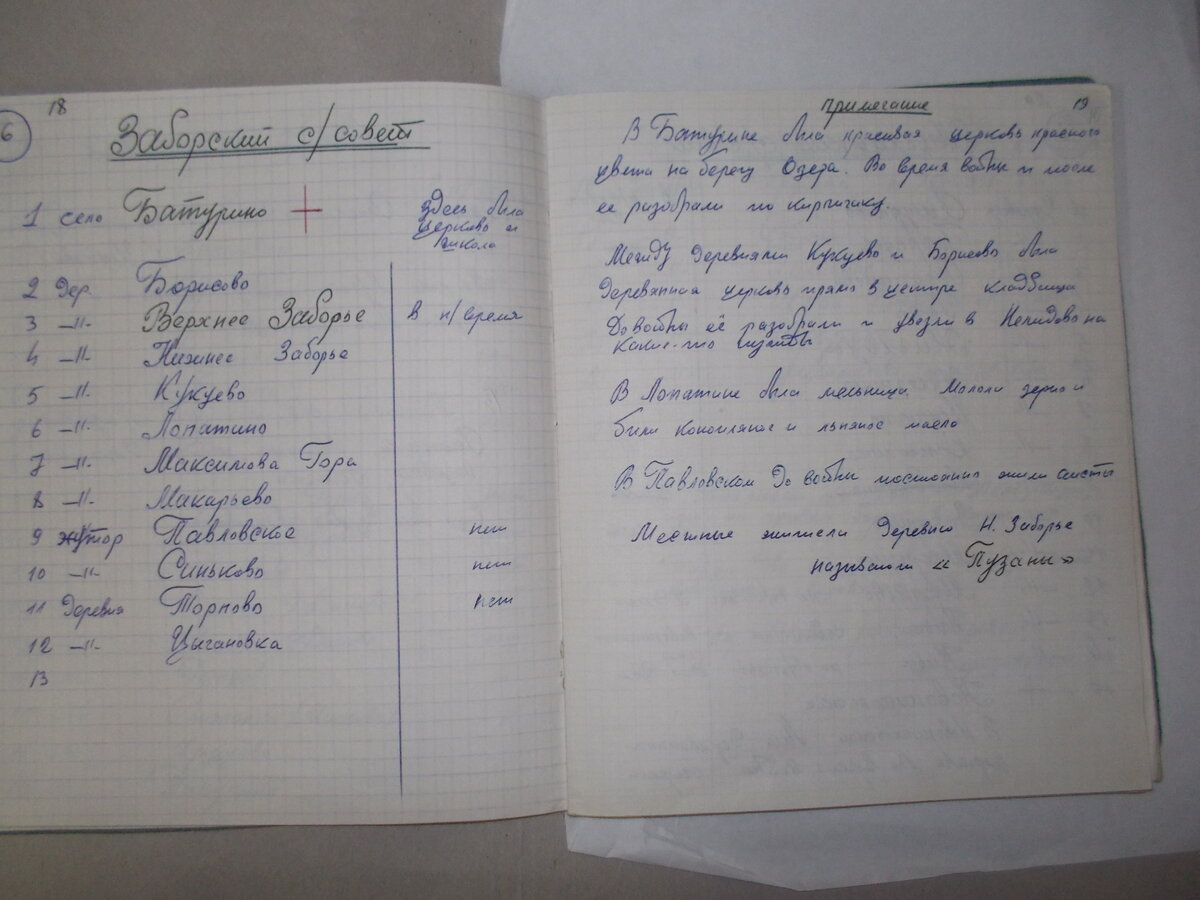 6
18
Заборский с/совет
1 село Батурино + здесь была
церковь и
школа
2 Дер. Борисово
3 -"- Верхнее Заборье в н/время
4 -"- Нижнее Заборье
5 -"- Кукуево
6 -"- Лопатино
7 -"- Максимова Гора
8 -"- Макарьево
9 хутор Павловское нет
10 -"- Синьково нет
11 Деревня Торпово нет
12 -"- Цыгановка
13
Примечание 19
В Батурине была красивая церковь красного
цвета на берегу Озера. Во время войны и после
ее разобрали по кирпичику.
Между Деревнями Кукуево и Борисово была
Деревянная церковь прямо в центре кладбища
До войны её разобрали и увезли в Нелидово на
какие-то нужды
В Лопатине была мельница. Мололи зерно и
били конопляное и льняное масло
В Павловском До войны постоянно жили аисты
Местные жители Деревню Н. Заборье
называли «Пузаны»